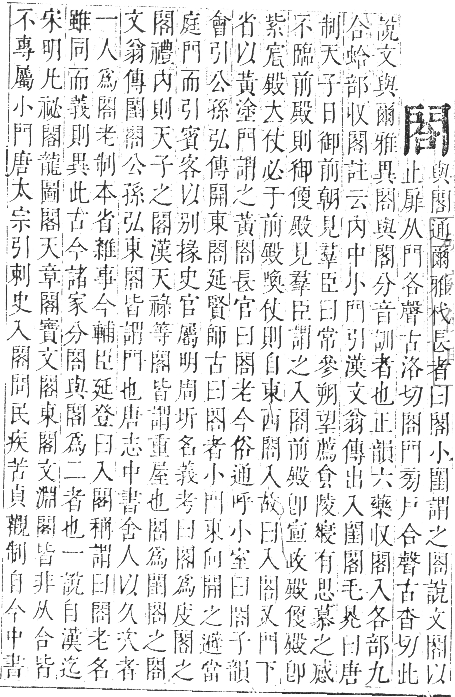 閤與閣通爾雅杙長者曰閣小閨謂之閤說文閣以
止扉从門各聲古洛切閤門旁戶合聲古沓切此
說文與爾雅異閣與閤分音訓者也正韻六藥收閣入各部九
合蛤部收閤註云内中小門引漢文翁傳出入閨閤毛晃曰唐
制天子日御前朝見羣臣曰常參朔望薦食陵寢有思慕之感
不臨前殿則御便殿見羣臣謂之入閤前殿卽宣政殿便殿卽
紫宸殿大仗必于前殿喚仗則自東西閤入故曰入閤又門下
省以黃塗門謂之黃閤長官曰閤老今俗通呼小室曰閤子韻
會引公孫弘傳開東閤延賢師古曰閤者小門東向開之避當
庭門而引賓客以別掾史官屬明周圻名義考曰閣為庋閣之
閣禮内則天子之閣漢天祿等閣皆謂重屋也閤為閨閤之閤
文翁傳閨閤公孫弘東閤皆謂門也唐志中書舍人以久次者
一人為閤老制本省雜事今輔臣延登曰入閣稱謂曰閣老名
雖同而義則異此古今諸家分閣與閤為二者也一說自漢迄
宋明凡祕閣龍圖閣天章閣寶文閣東閣文淵閣皆非从合皆
不專屬小門唐太宗引刺史入閤問民疾苦貞觀制自今中書